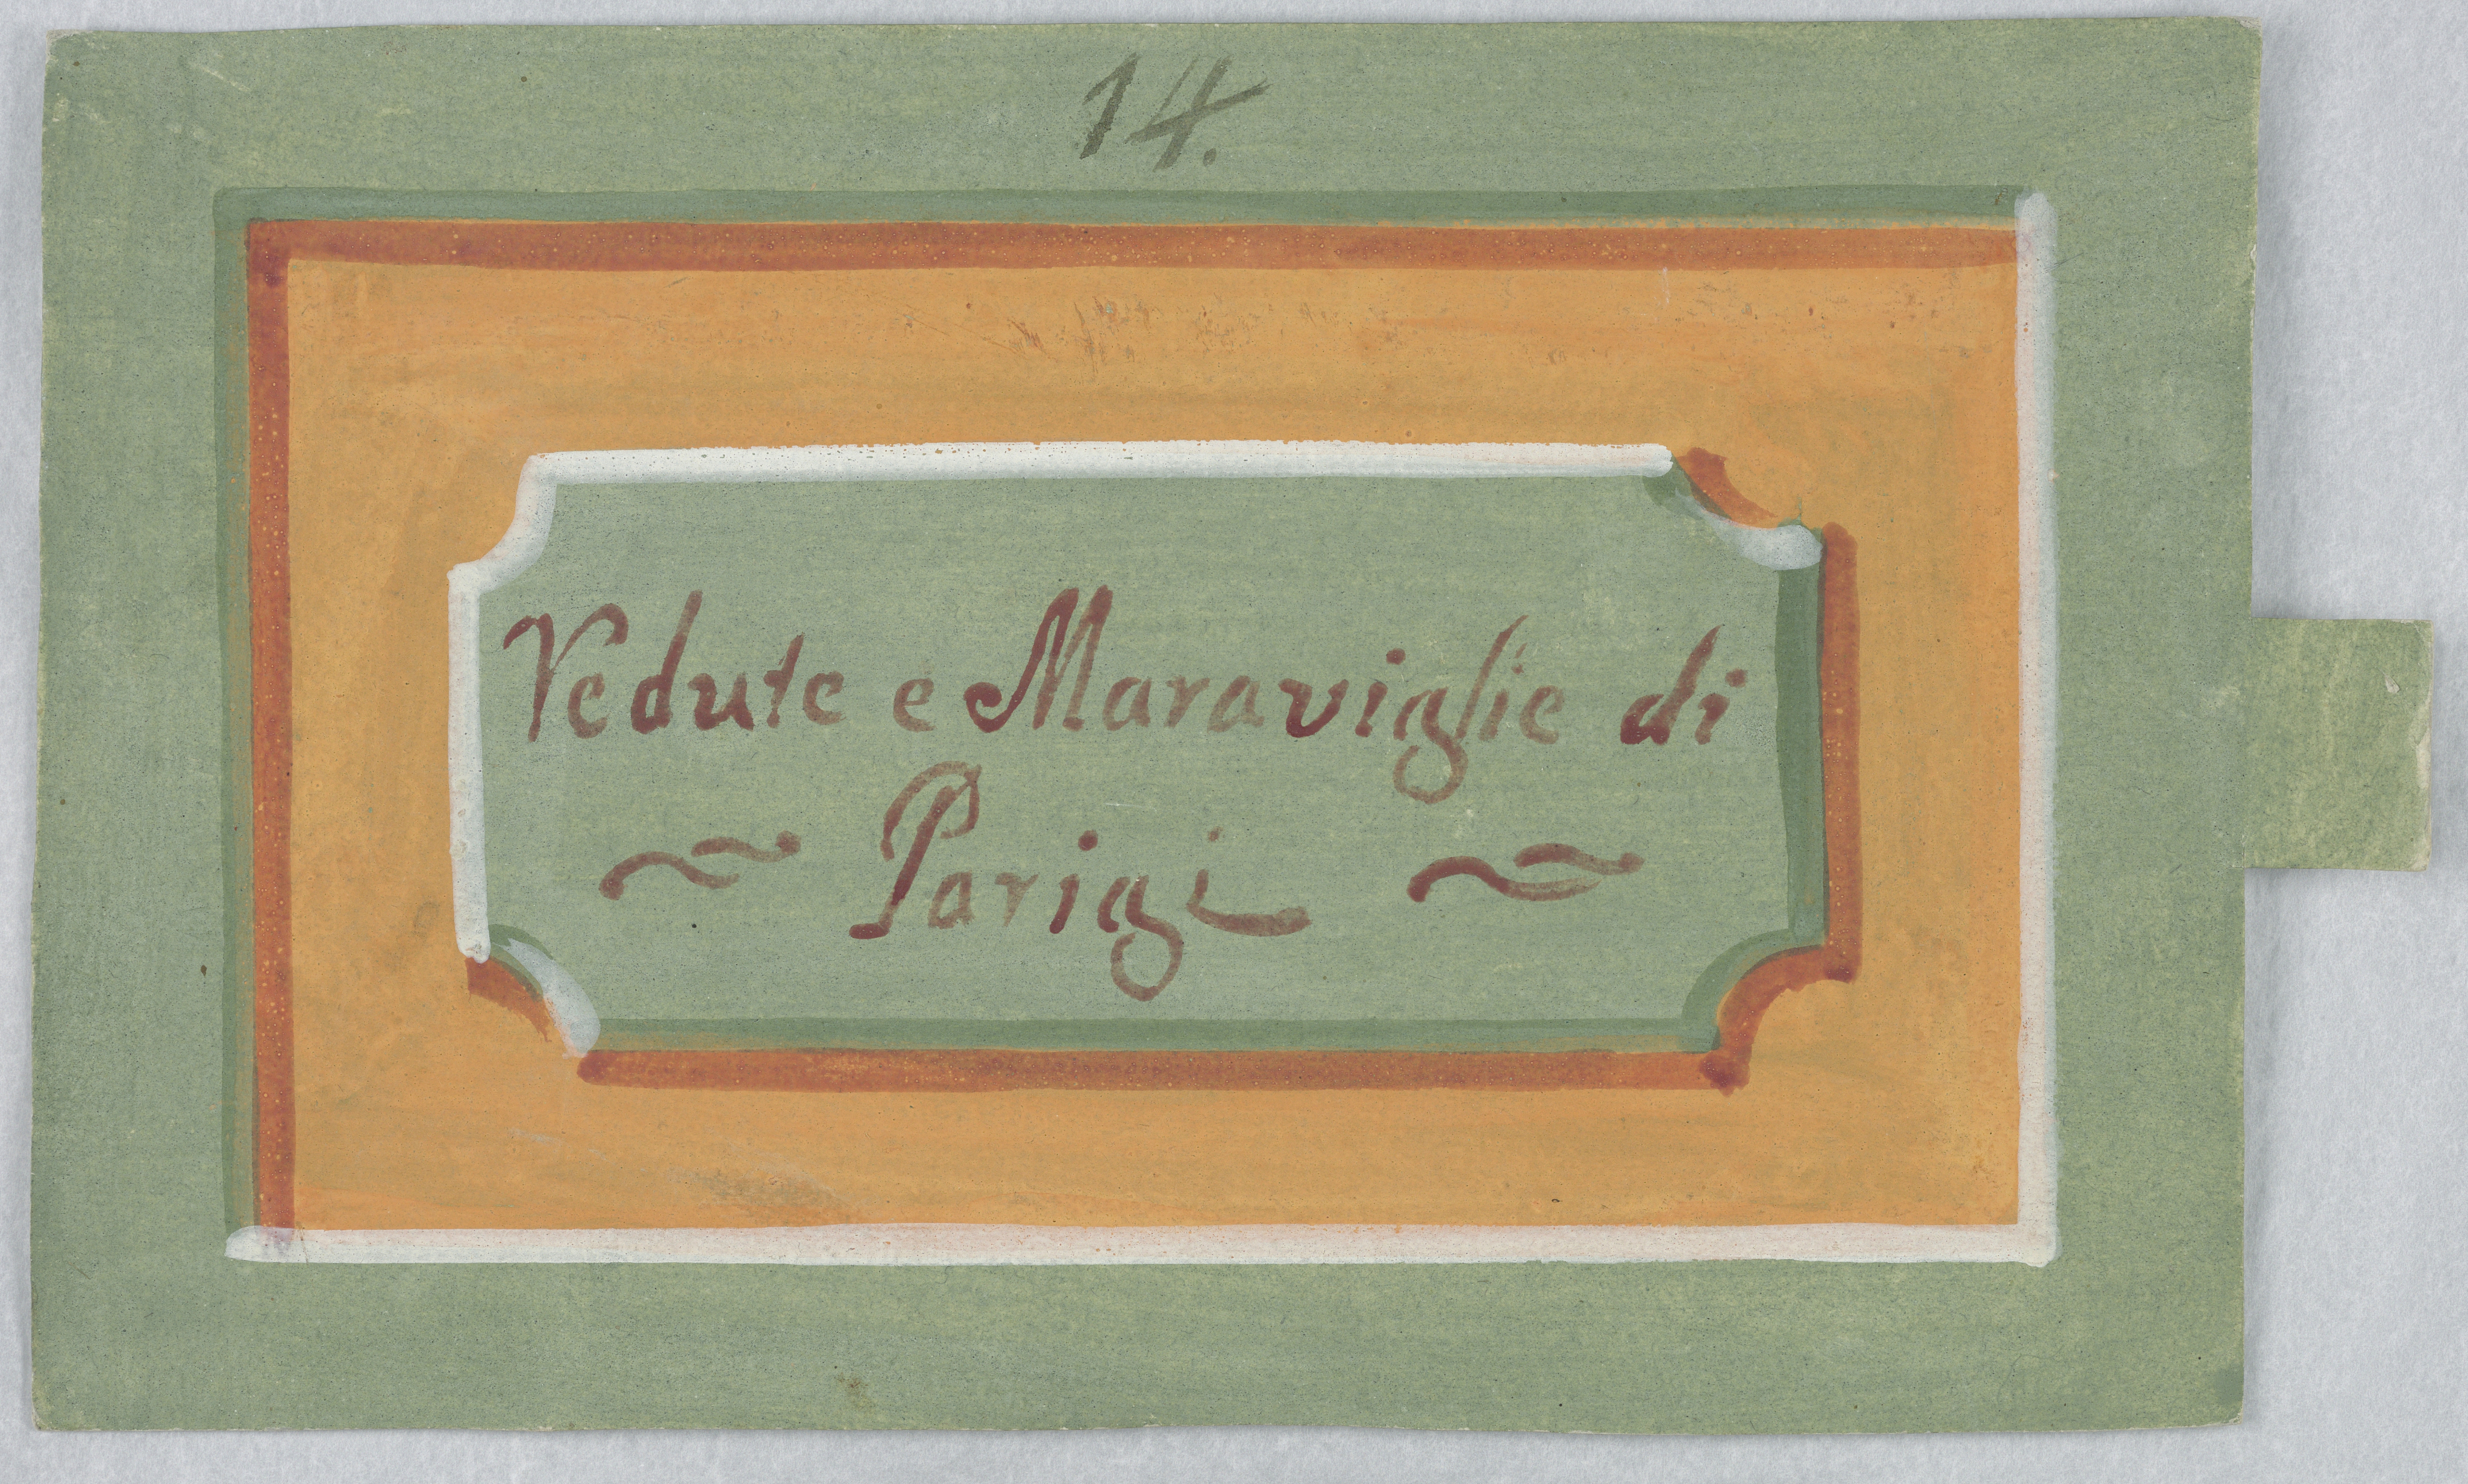 14.
Vedute e Maraviglie di
~ Parigi ~